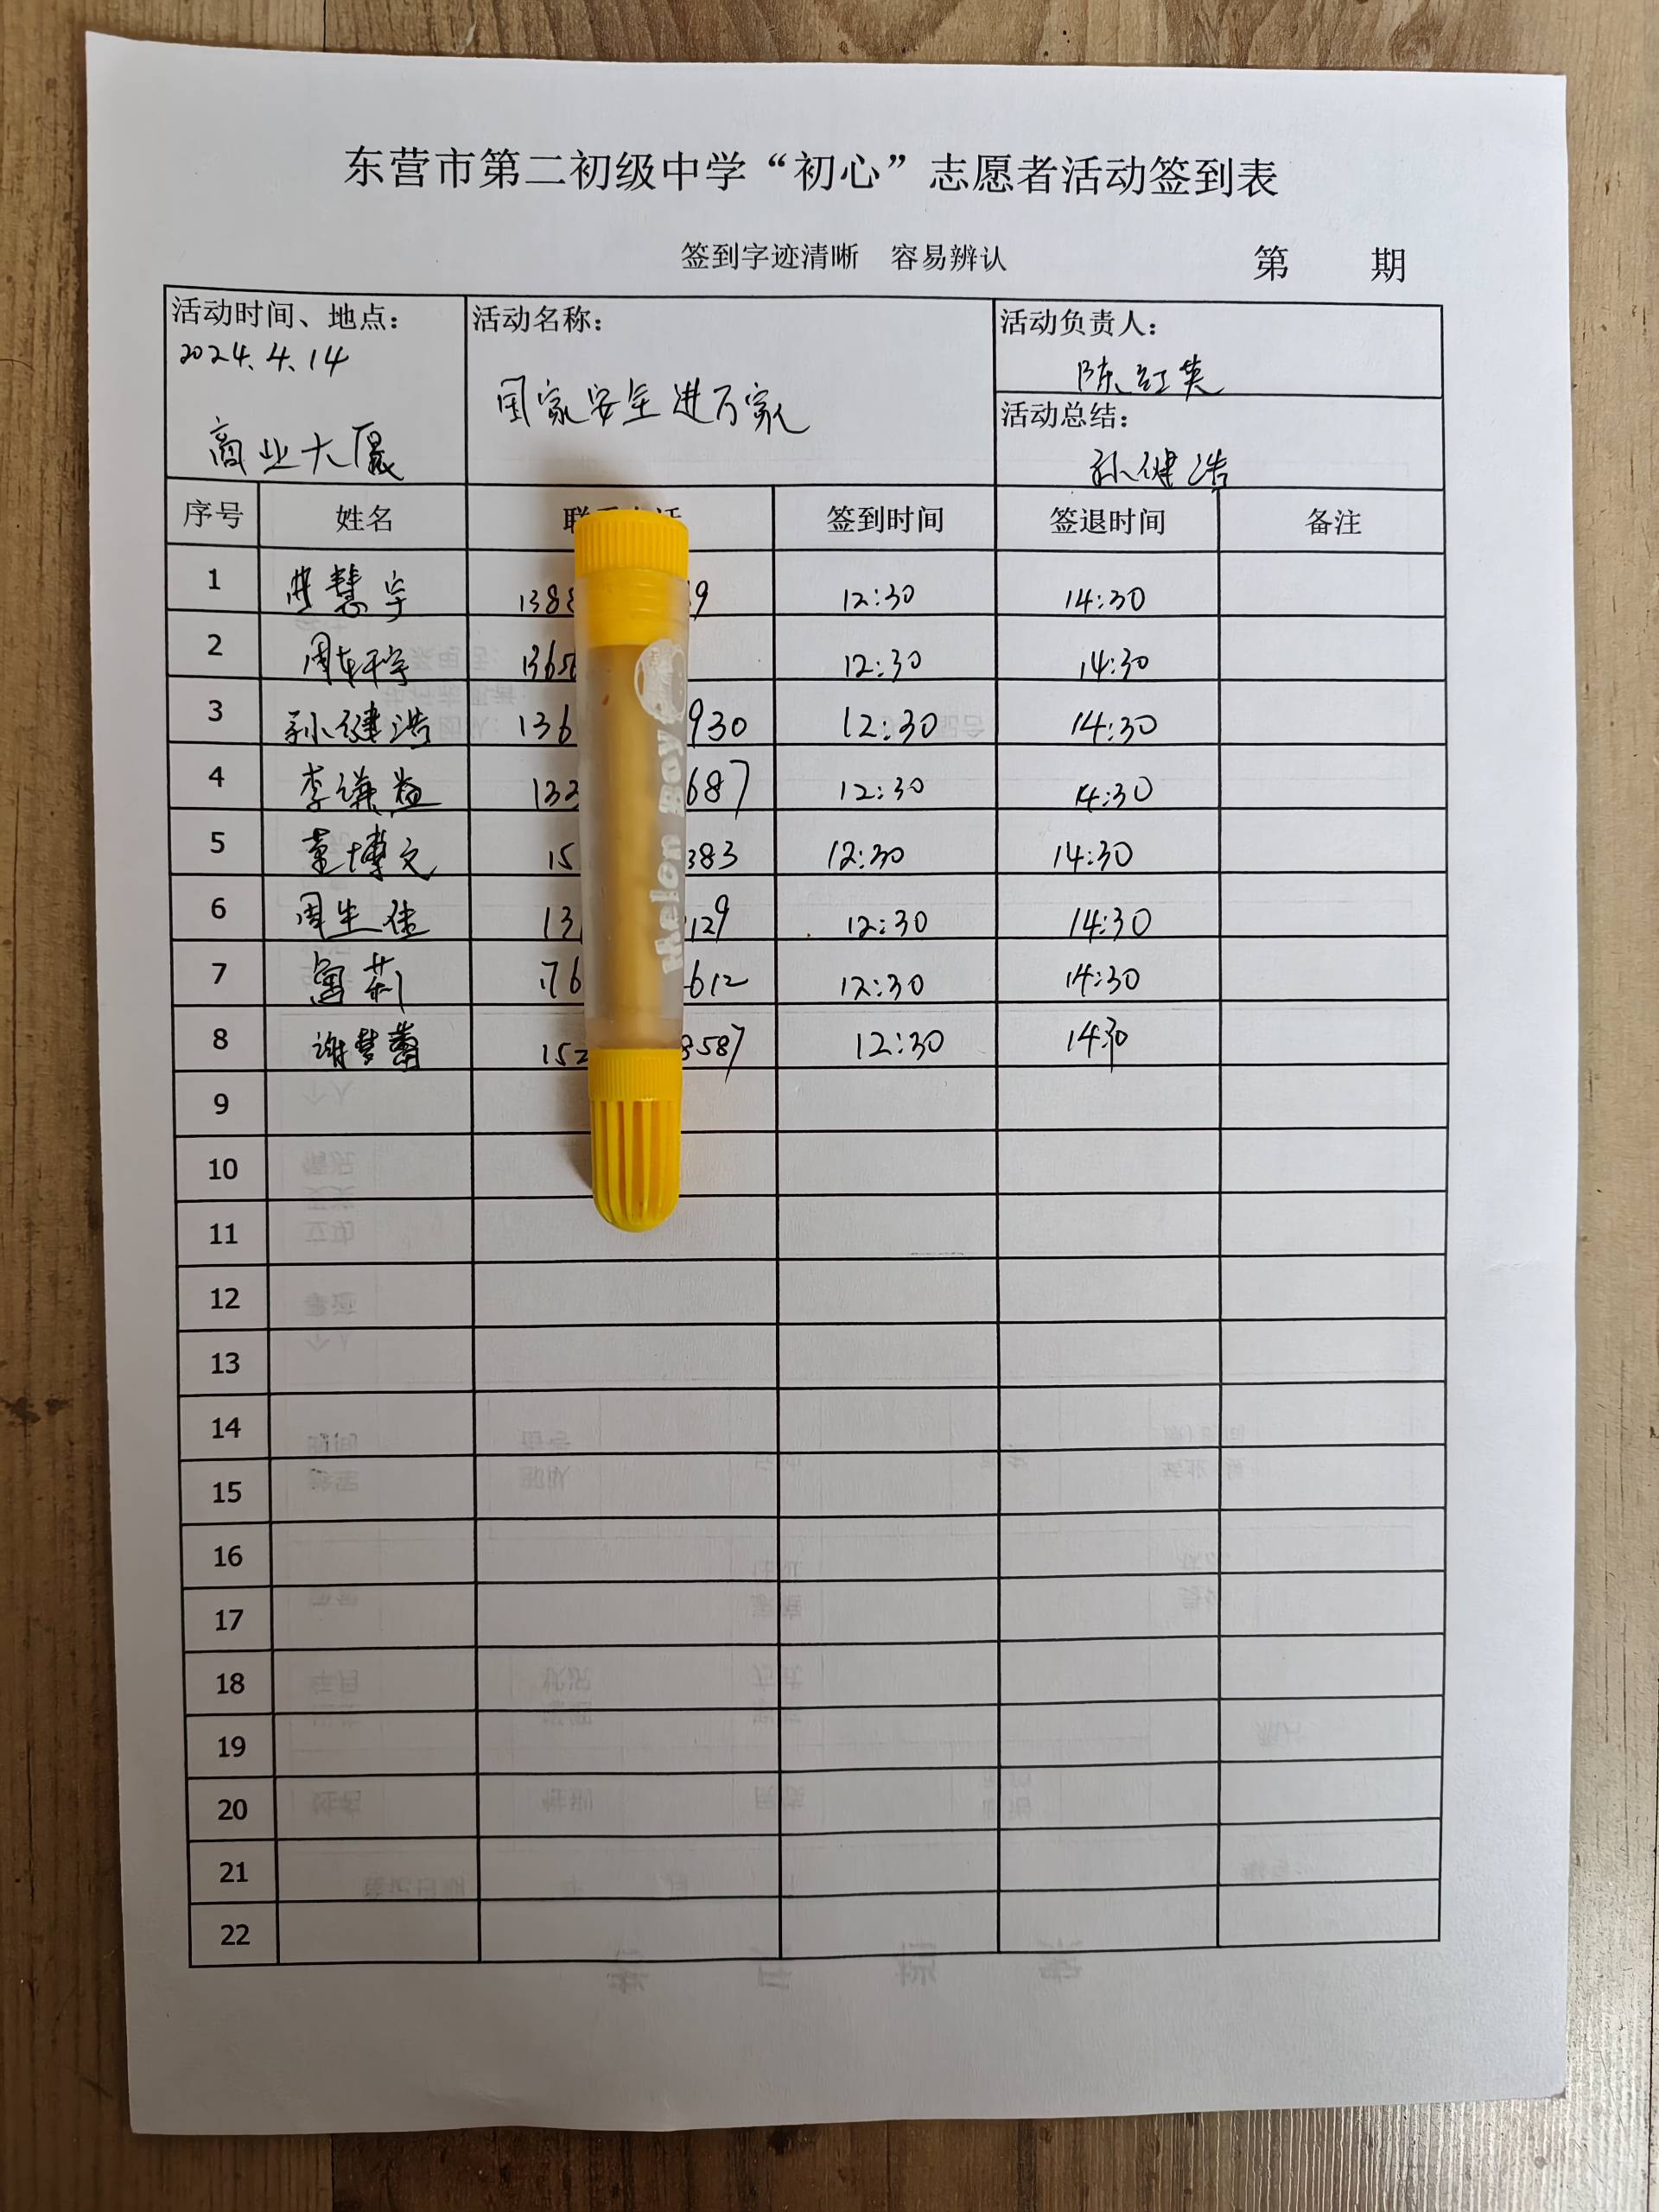 东营市第二初级中学“初心”志愿者活动签到表
签到字迹清晰 容易辨认 第 期
活动时间、地点：
2024.4.14
商业大厦
活动名称：
国家安全进万家
活动负责人：
陈红英
活动总结：
孙健浩
序号 姓名 联 签到时间 签退时间 备注
1 慧宇 138 9 12:30 14:30
2 周轩宇 1365 12:30 14:30
3 孙健浩 136 930 12:30 14:30
4 李谦益 133 687 12:30 14:30
5 董博文 15 383 12:30 14:30
6 周生佳 13 129 12:30 14:30
7 莉 176 612 12:30 14:30
8 谢梦蕾 152 8587 12:30 14:30
9
10
11
12
13
14
15
16
17
18
19
20
21
22
Helon Boy